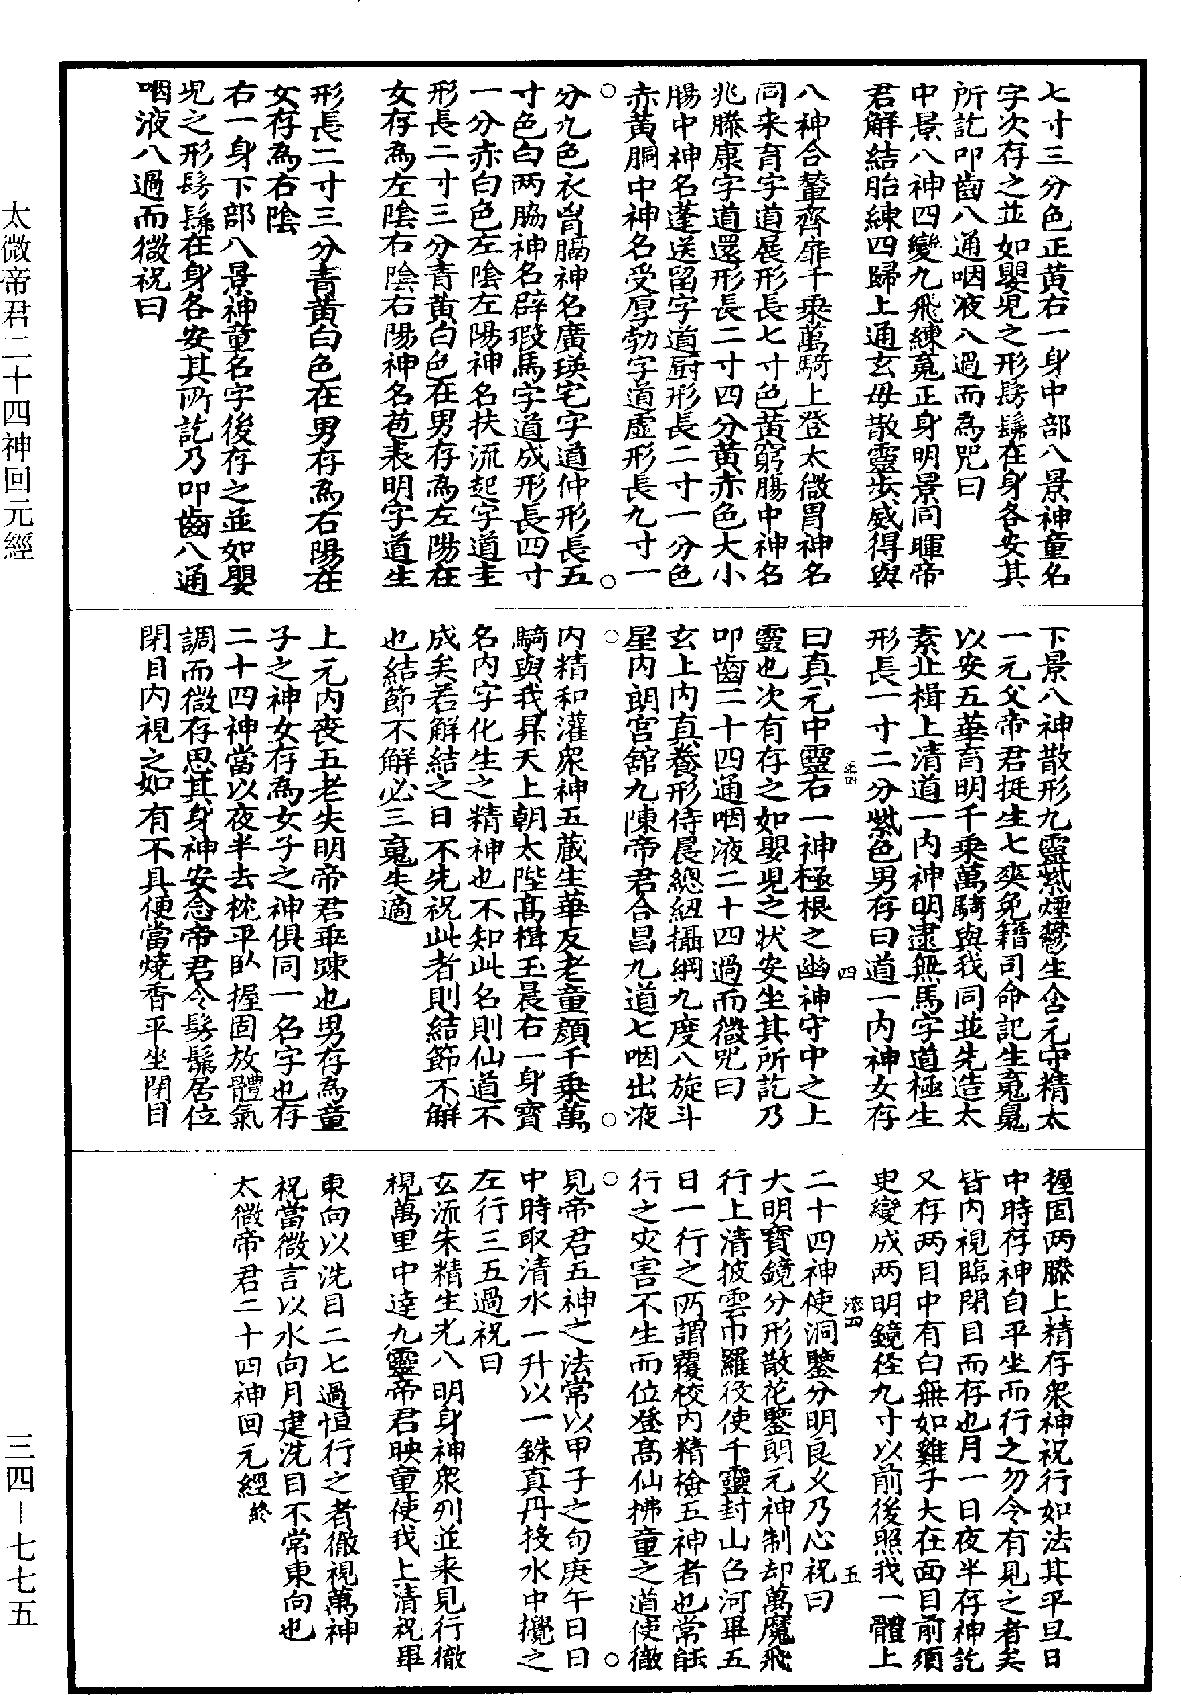 七寸三分色正黃右一身中部八景神童名
字次存之並如嬰兒之形髣髴在身各安其
所訖叩齒八通咽液八過而為咒曰
中景八神四變九飛練魂正身明景同暉帝
君解結胎練四歸上通玄母散靈步威得與
八神合輦齊扉千乘萬騎上登太微胃神名
同来育字道展形長七寸色黃窮腸中神名
兆滕康字道還形長二寸四分黃赤色大小
腸中神名蓬送留字道厨形長二寸一分色
赤黃胴中神名受厚勃字道虛形長九寸一
分九色衣胷膈神名廣瑛宅字道仲形長五
寸色白两脇神名辟瑕馬字道成形長四寸
一分赤白色左陰左陽神名扶流起字道圭
形長二寸三分青黃白色在男存為左陽在
女存為左陰右陰右陽神名苞表明字道生
形長二寸三分青黃白色在男存為右陽在
女存為右陰
右一身下部八景神童名字後存之並如嬰
兒之形髣髴在身各安其所訖乃叩齒八通
咽液八過而微祝曰
下景八神散形九靈紫煙欝生含元守精太
一元父帝君挺生七爽免籍司命記生魂魄
以安五華育明千乘萬騎與我同並先造太
素止楫上清道一内神明逮無馬字道極生
形長一寸二分紫色男存曰道一内神女存
曰真元中靈右一神極根之幽神守中之上
靈也次有存之如嬰兒之状安坐其所訖乃
叩齒二十四通咽液二十四過而微咒曰
玄上内真養形侍晨總紐攝綱九度八旋斗
星内朗宮舘九陳帝君合昌九道七咽出液
内精和灌衆神五藏生華反老童顔千乘萬
騎與我昇天上朝太陛髙楫玉晨右一身寳
名内字化生之精神也不知此名則仙道不
成矣若解結之日不先祝此者則結節不解
也結節不解必三魂失適
上元内喪五老失明帝君乖踈也男存為童
子之神女存為女子之神俱同一名字也存
二十四神當以夜半去枕平卧握固放體氣
調而微存思其身神安念帝君令髣髴居位
閉目内視之如有不具便當燒香平坐閉目
握固两膝上精存衆神祝行如法其平旦日
中時存神自平坐而行之勿令有見之者矣
皆内視臨閉目而存也月一日夜半存神訖
又存两目中有白無如雞子大在面目前須
臾變成两明鏡徑九寸以前後照我一體上
二十四神使洞鑒分明良乆乃心祝曰
大明寳鏡分形散花鑒朗元神制却萬魔飛
行上清披雲巾羅役使千靈封山召河畢五
日一行之所謂覆校内精檢五神者也常能
行之灾害不生而位登高仙拂童之道使徹
見帝君五神之法常以甲子之旬庚午日日
中時取清水一升以一銖真丹投水中攪之
左行三五過祝曰
玄流朱精生光八明身神衆列並来見行徹
視萬里中達九靈帝君映童使我上清祝畢
東向以洗目二七過恒行之者徹視萬神
祝當微言以水向月建洗目不常東向也
太微帝君二十四神回元經終
太微帝君二十四神回元經
三四－七七五
四
五